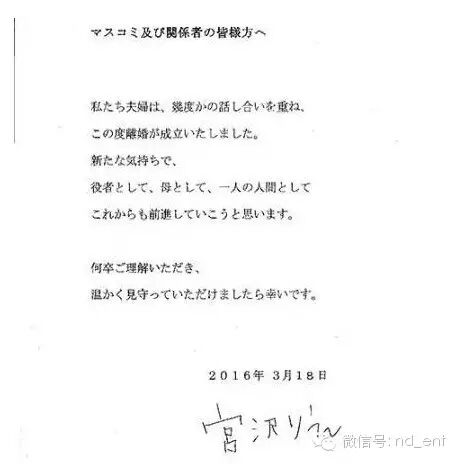 マスコミ及び関係者の皆様方へ
私たち夫婦は、幾度かの話し合いを重ね、
この度離婚が成立いたしました。
新たな気持ちで、
役者として、母として、一人の人間として
これからも前進していこうと思います。
何卒ご理解いただき、
温かく見守っていただけましたら幸いです。
2016年 3月18日
宮沢りえ
微信号: nd_ent